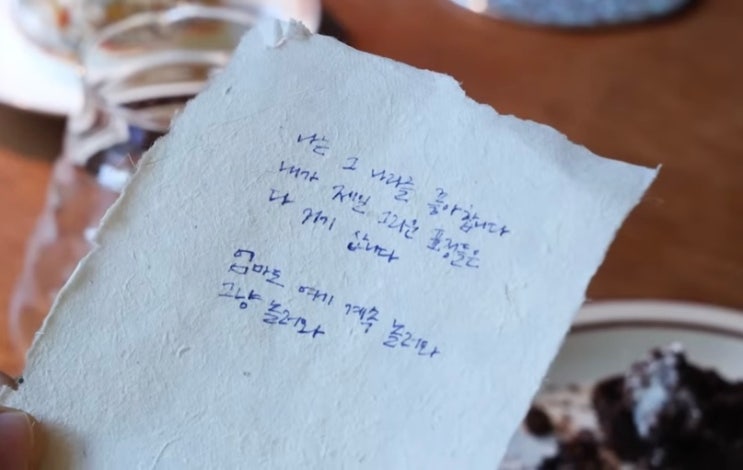 나는 그 나라를 좋아합니다
내가 제일 그리운 풍경들은
다 거기 삽니다
엄마도 여기 계속 놀러와
그냥 놀러와